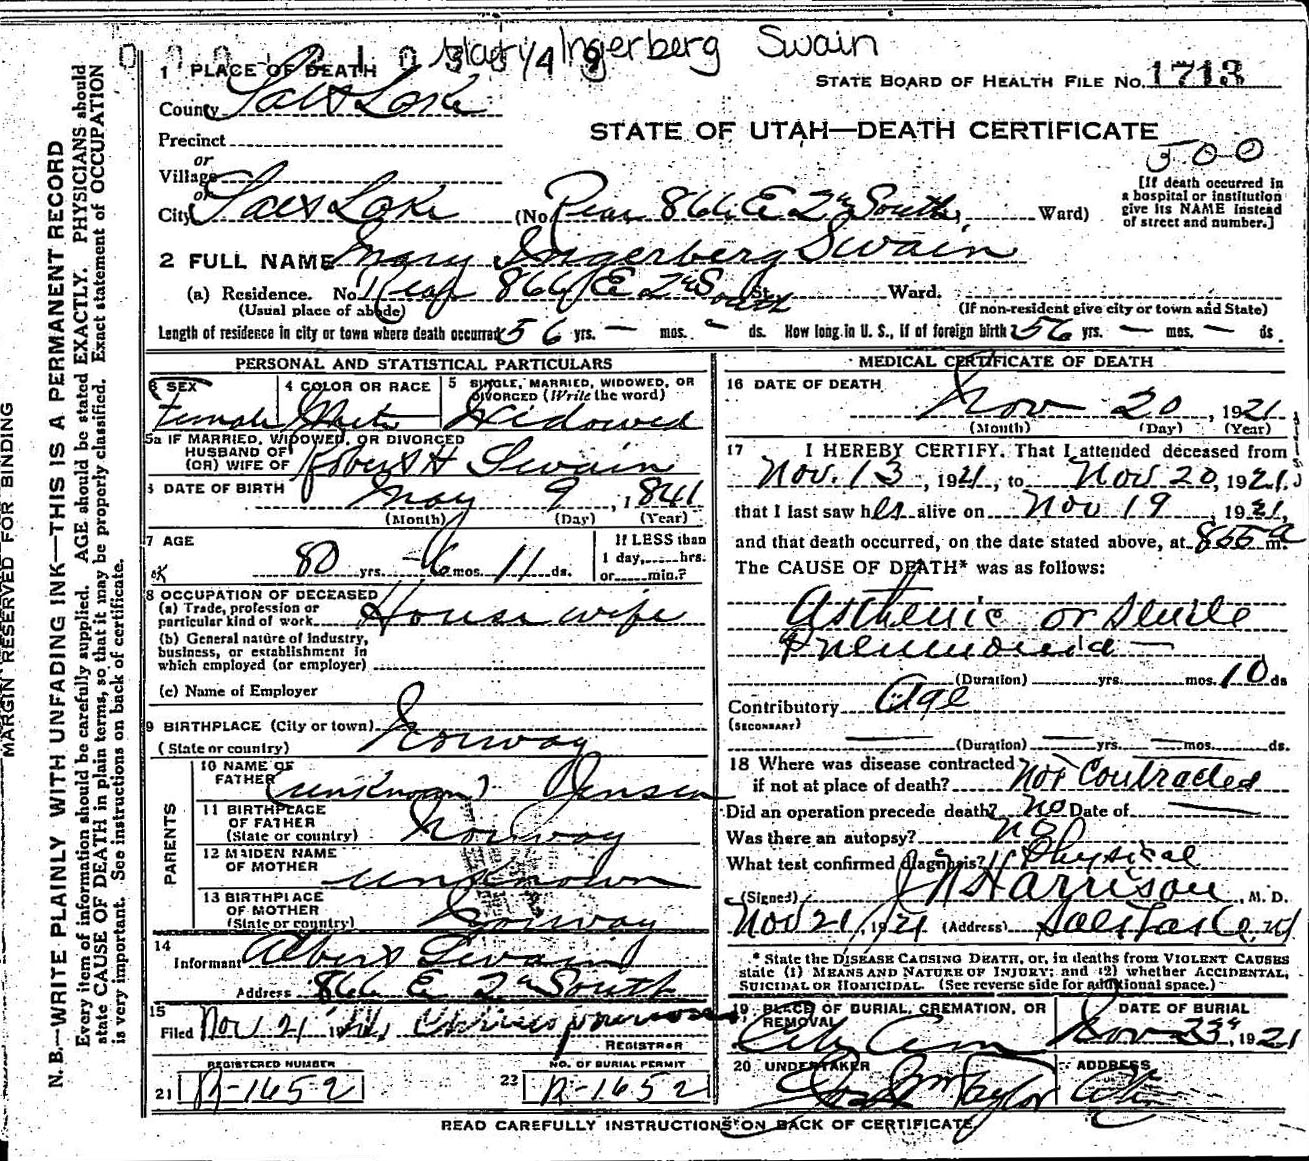 Mary Ingerberg Swain
1 PLACE OF DEATH
STATE BOARD OF HEALTH FILE NO. 1713
County Salt Lake
STATE OF UTAH—DEATH CERTIFICATE
Precinct
500
or
Village
or
City Salt Lake (No. Rear 866 E 2nd South, Ward)
[If death occurred in a hospital or institution give its NAME instead of street and number.]
2 FULL NAME Mary Ingerberg Swain
(a) Residence. No. Rear 866 E 2nd South St. Ward.
(Usual place of abode) (If non-resident give city or town and State)
Length of residence in city or town where death occurred 56 yrs. — mos. — ds. How long in U. S., if of foreign birth? 56 yrs. — mos. — ds.
PERSONAL AND STATISTICAL PARTICULARS
3 SEX
Female
4 COLOR OR RACE
White
5 SINGLE, MARRIED, WIDOWED, OR DIVORCED (Write the word)
Widowed
5a IF MARRIED, WIDOWED, OR DIVORCED
HUSBAND OF
(OR) WIFE OF Robert H Swain
6 DATE OF BIRTH May 9, 1841
(Month) (Day) (Year)
7 AGE
80 yrs. 6 mos. 11 ds.
If LESS than
1 day,......hrs.
or......min.?
8 OCCUPATION OF DECEASED
(a) Trade, profession or
particular kind of work Housewife
(b) General nature of Industry,
business, or establishment in
which employed (or employer)
(c) Name of Employer
9 BIRTHPLACE (City or town)
(State or country) Norway
PARENTS
10 NAME OF
FATHER (unknown) Jensen
11 BIRTHPLACE
OF FATHER
(State or country) Norway
12 MAIDEN NAME
OF MOTHER unknown
13 BIRTHPLACE
OF MOTHER
(State or country) Norway
14
Informant Albert Swain
Address 866 E 2nd South
15
Filed Nov 21
REGISTRAR
REGISTERED NUMBER
21 R-1652
NO. OF BURIAL PERMIT
22 R-1652
MEDICAL CERTIFICATE OF DEATH
16 DATE OF DEATH
Nov 20, 1921
(Month) (Day) (Year)
17 I HEREBY CERTIFY. That I attended deceased from
Nov. 13, 1921, to Nov 20, 1921,
that I last saw her alive on Nov 19 1921,
and that death occurred, on the date stated above, at 855 a m.
The CAUSE OF DEATH* was as follows:
Asthenic or Senile
Pneumonia —
(Duration) yrs. mos. 10 ds
Contributory Age
(SECONDARY)
(Duration) — yrs. — mos. ds.
18 Where was disease contracted
if not at place of death? Not Contracted
Did an operation precede death? no Date of —
Was there an autopsy? no
What test confirmed diagnosis? Physical
(Signed) J N Harrison, M. D.
Nov 21, 1921 (Address) Salt Lake, Ut
* State the DISEASE CAUSING DEATH, or, in deaths from VIOLENT CAUSES
state (1) MEANS AND NATURE OF INJURY; and (2) whether ACCIDENTAL,
SUICIDAL OR HOMICIDAL. (See reverse side for additional space.)
19 PLACE OF BURIAL, CREMATION, OR
REMOVAL
City Cem
DATE OF BURIAL
Nov 23rd, 1921
20 UNDERTAKER
Taylor
ADDRESS
City
READ CAREFULLY INSTRUCTIONS ON BACK OF CERTIFICATE.
MARGIN RESERVED FOR BINDING
N. B.—WRITE PLAINLY WITH UNFADING INK—THIS IS A PERMANENT RECORD
Every item of information should be carefully supplied. AGE should be stated EXACTLY. PHYSICIANS should
state CAUSE OF DEATH in plain terms, so that it may be properly classified. Exact statement of OCCUPATION
is very important. See instructions on back of certificate.